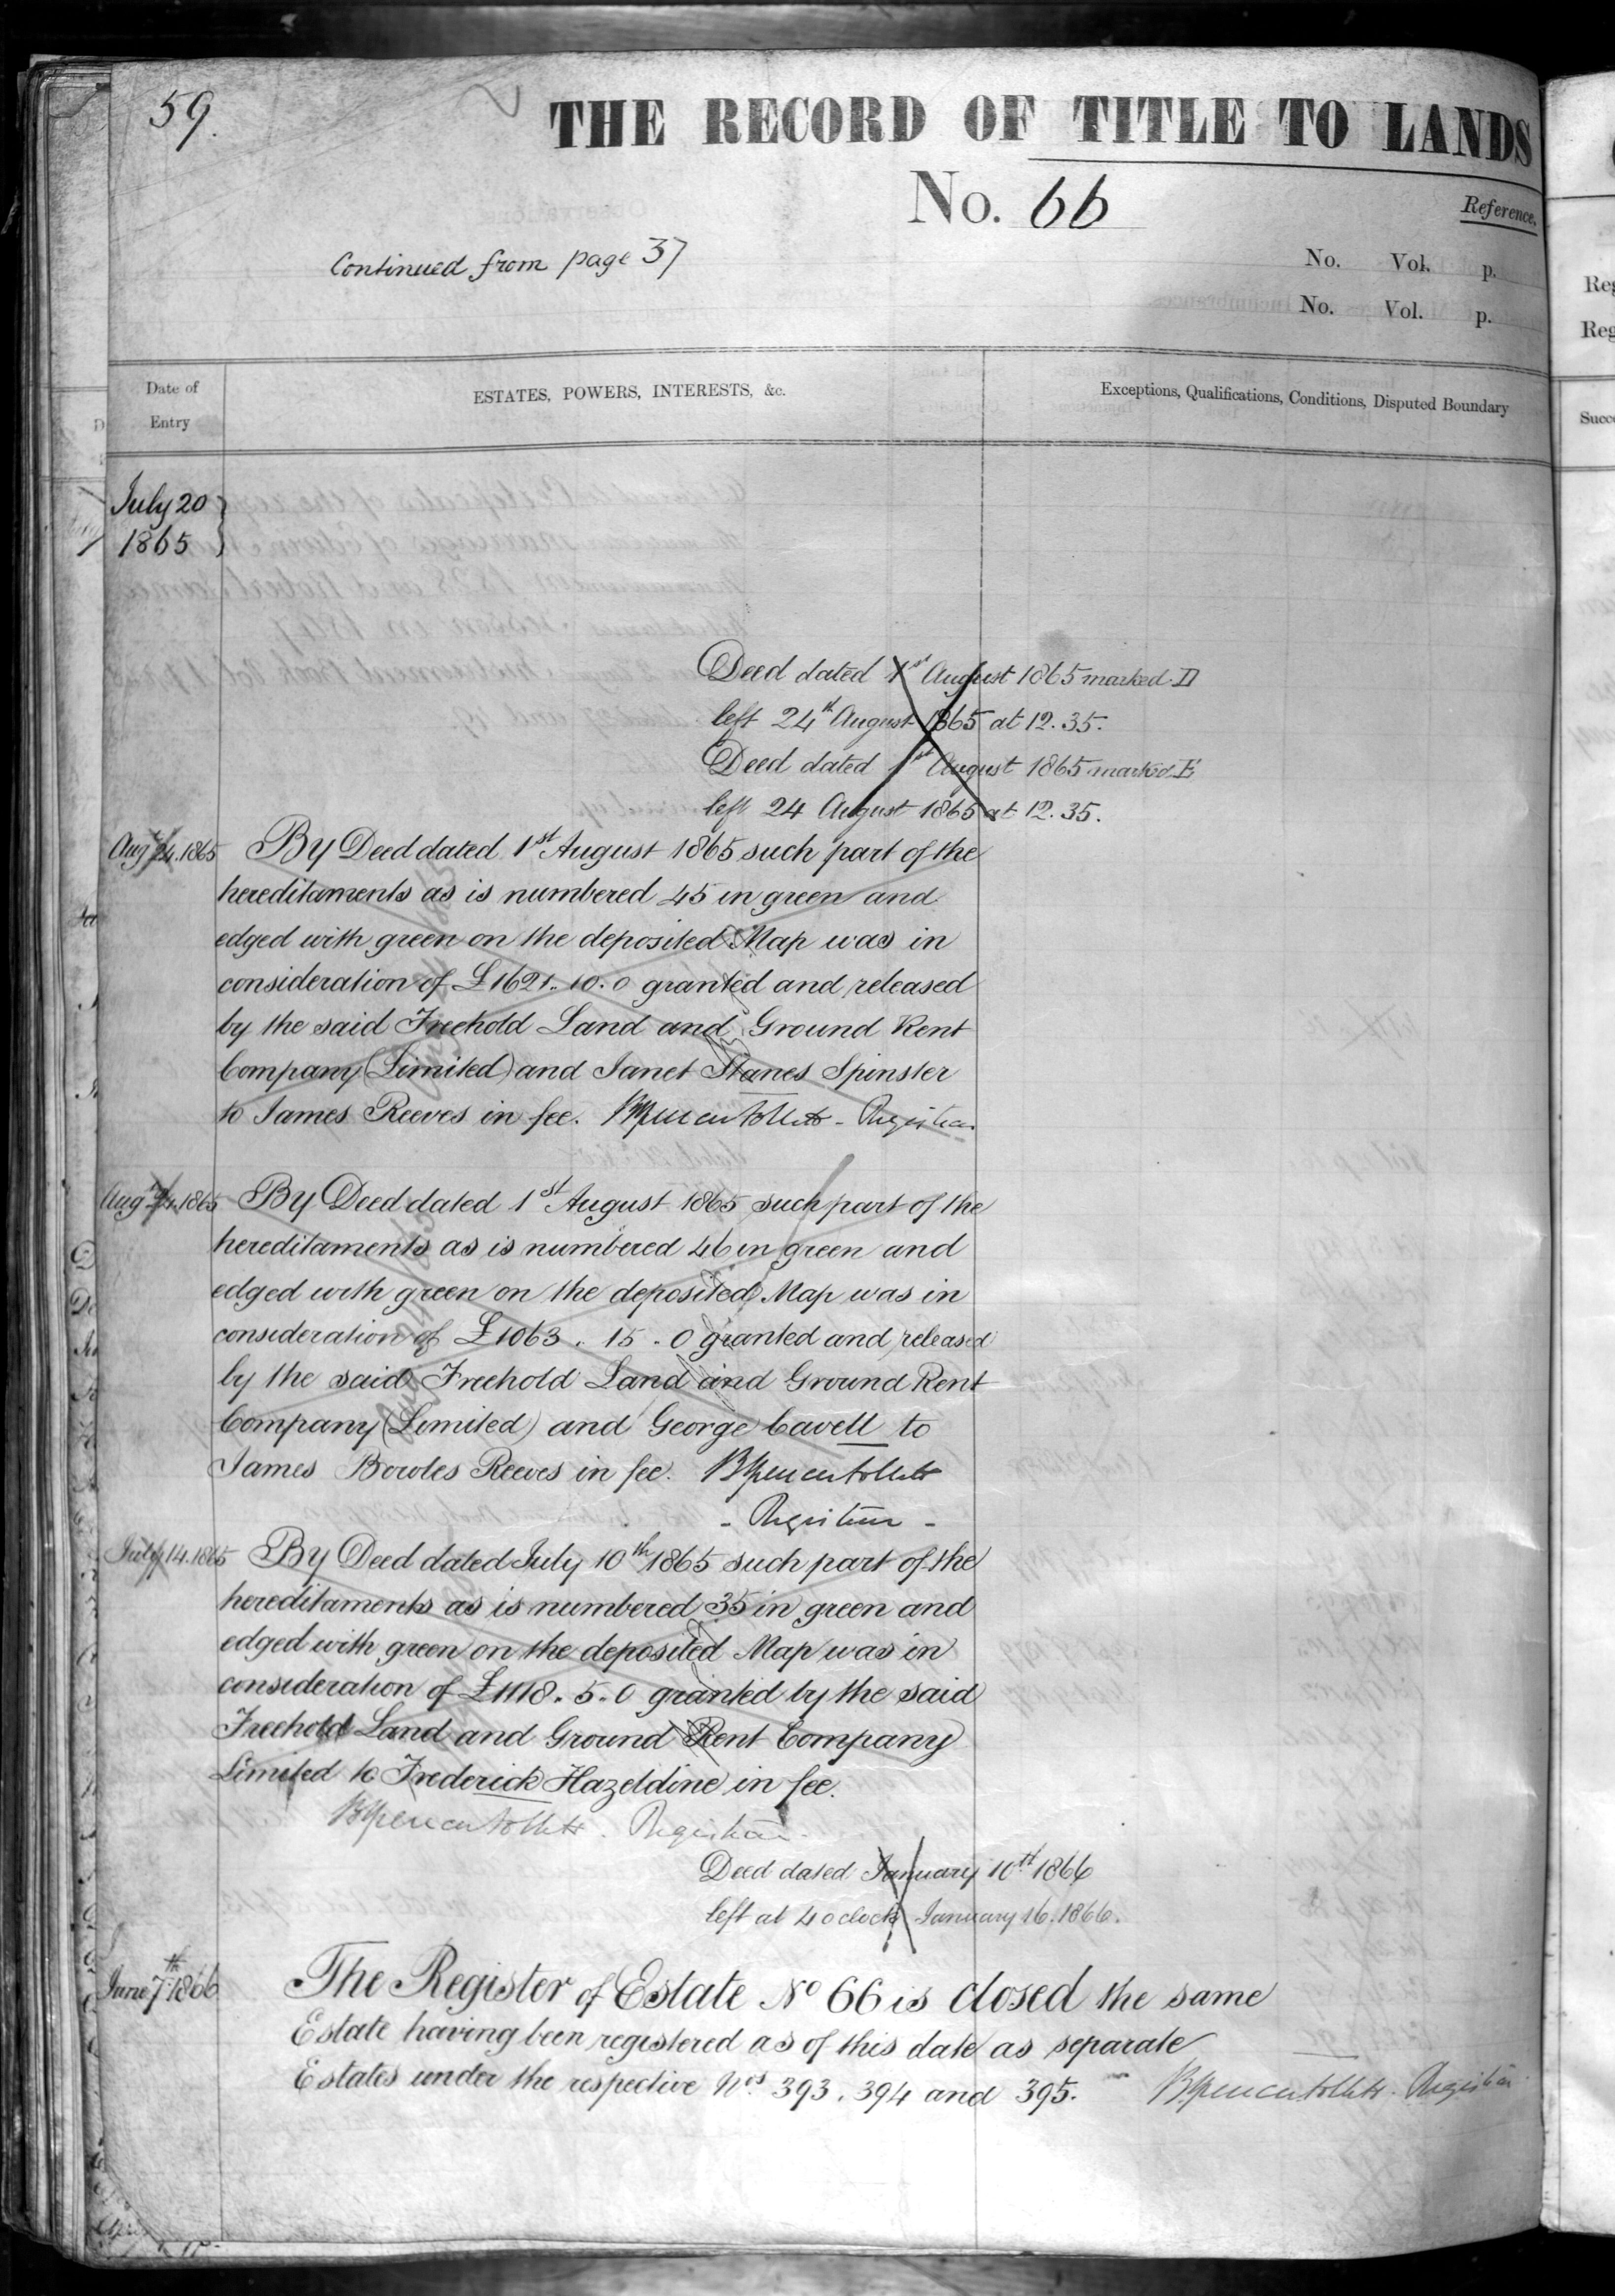 59.
THE RECORD OF TITLE TO LANDS
No. 66
Reference.
Continued from page 37
No. Vol. p.
No. Vol. p.
Date of Entry
ESTATES, POWERS, INTERESTS, &c.
Exceptions, Qualifications, Conditions, Disputed Boundary
July 20
1865
Deed dated 1st August 1865 marked D
left 24th August 1865 at 12.35.
Deed dated 1st August 1865 marked E
left 24 August 1865 at 12.35.
Aug 24. 1865 By Deed dated 1st August 1865 such part of the
hereditaments as is numbered 45 in green and
edged with green on the deposited Map was in
consideration of £1621.10.0 granted and released
by the said Freehold Land and Ground Rent
Company (Limited) and Janet Stanes Spinster
to James Reeves in fee. Registrar
Aug 24. 1865 By Deed dated 1st August 1865 such part of the
hereditaments as is numbered 46 in green and
edged with green on the deposited Map was in
consideration of £1063.15.0 granted and released
by the said Freehold Land and Ground Rent
Company (Limited) and George Cavell to
James Bowles Reeves in fee.
- Registrar -
July 14. 1865 By Deed dated July 10th 1865 such part of the
hereditaments as is numbered 35 in green and
edged with green on the deposited Map was in
consideration of £1118.5.0 granted by the said
Freehold Land and Ground Rent Company
Limited to Frederick Hazeldine in fee.
Registrar.
Deed dated January 10th 1866
left at 4 oclock January 16. 1866.
June 7th 1866 The Register of Estate No 66 is closed the same
Estate having been registered as of this date as separate
Estates under the respective Nos 393. 394 and 395. Registrar
Reg
Reg
Succe